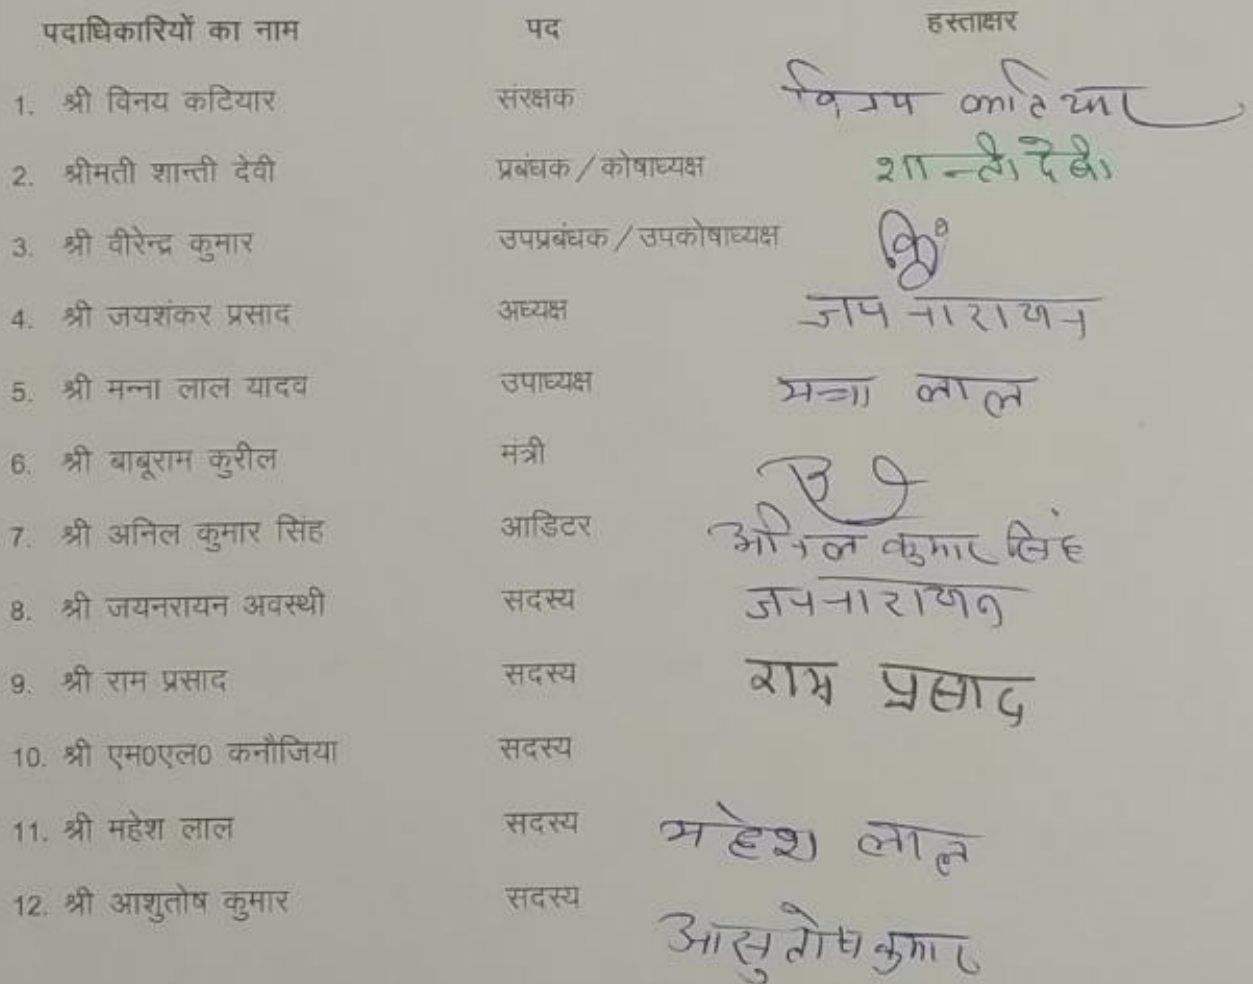 पदाधिकारियों का नाम पद हस्ताक्षर
1. श्री विनय कटियार संरक्षक विनय कटियार
2. श्रीमती शान्ती देवी प्रबंधक / कोषाध्यक्ष शान्ती देवी
3. श्री वीरेन्द्र कुमार उपप्रबंधक / उपकोषाध्यक्ष
4. श्री जयशंकर प्रसाद अध्यक्ष जय नारायन
5. श्री मन्ना लाल यादव उपाध्यक्ष मन्ना लाल
6. श्री बाबूराम कुरील मंत्री
7. श्री अनिल कुमार सिंह आडिटर अनिल कुमार सिंह
8. श्री जयनरायन अवस्थी सदस्य जयनारायन
9. श्री राम प्रसाद सदस्य राम प्रसाद
10. श्री एम0एल0 कनौजिया सदस्य
11. श्री महेश लाल सदस्य महेश लाल
12. श्री आशुतोष कुमार सदस्य आसुतोष कुमार